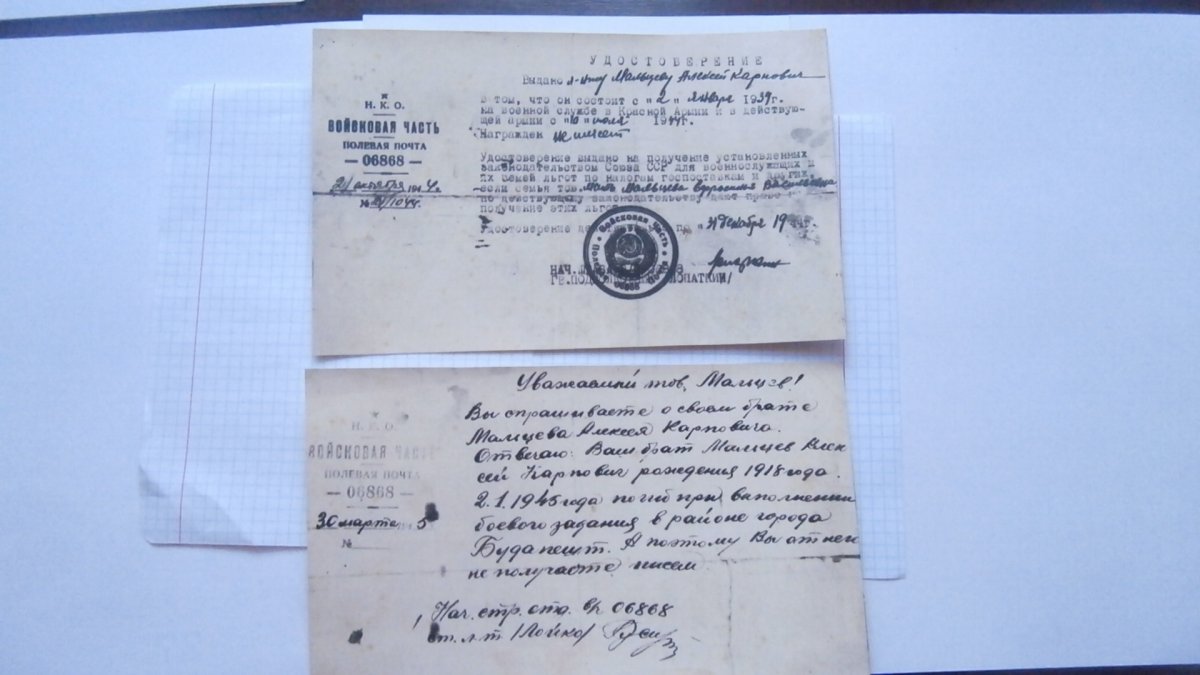 УДОСТОВЕРЕНИЕ
Выдано л-нту Мальцеву Алексей Карпович
В том, что он состоит с "2" января 1939г.
на военной службе в Красной Армии и в действую-
щей армии с "10" июля 1944г.
Награжден не имеет
Удостоверение выдано на получение установленных
законодательством Союза ССР для военнослужащих и
их семей льгот по налогам, госпоставкам и других,
если семья тов. мать Мальцева Васильевна
по действующему законодательству имеет право на
получение этих льгот.
Удостоверение по "31 декабря 1944г.
НАЧ.
ГВ.ПОДП ЛОПАТКИН/
Н. К. О.
ВОЙСКОВАЯ ЧАСТЬ
ПОЛЕВАЯ ПОЧТА
— 06868 —
21 октября 1944г.
№
Войсковая Часть
Полевая Почта
06868
Уважаемый тов. Мальцев!
Вы спрашиваете о своем брате
Мальцева Алексея Карповича.
Отвечаю: Ваш брат Мальцев Алек
сей Карпович рождения 1918 года.
2.1.1945 года погиб при выполнении
боевого задания в районе города
Будапешт. А поэтому Вы от него
не получаете писем.
Нач. стр. отд. в/ч 06868
ст. л-т /Лойко/
Н. К. О.
ВОЙСКОВАЯ ЧАСТЬ
ПОЛЕВАЯ ПОЧТА
— 06868 —
30 марта 1945
№